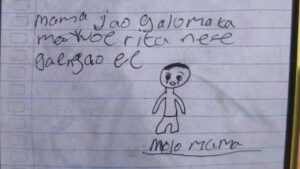 mama jao galomaka
marwoe rita nefe
gaengao ec
molo mama